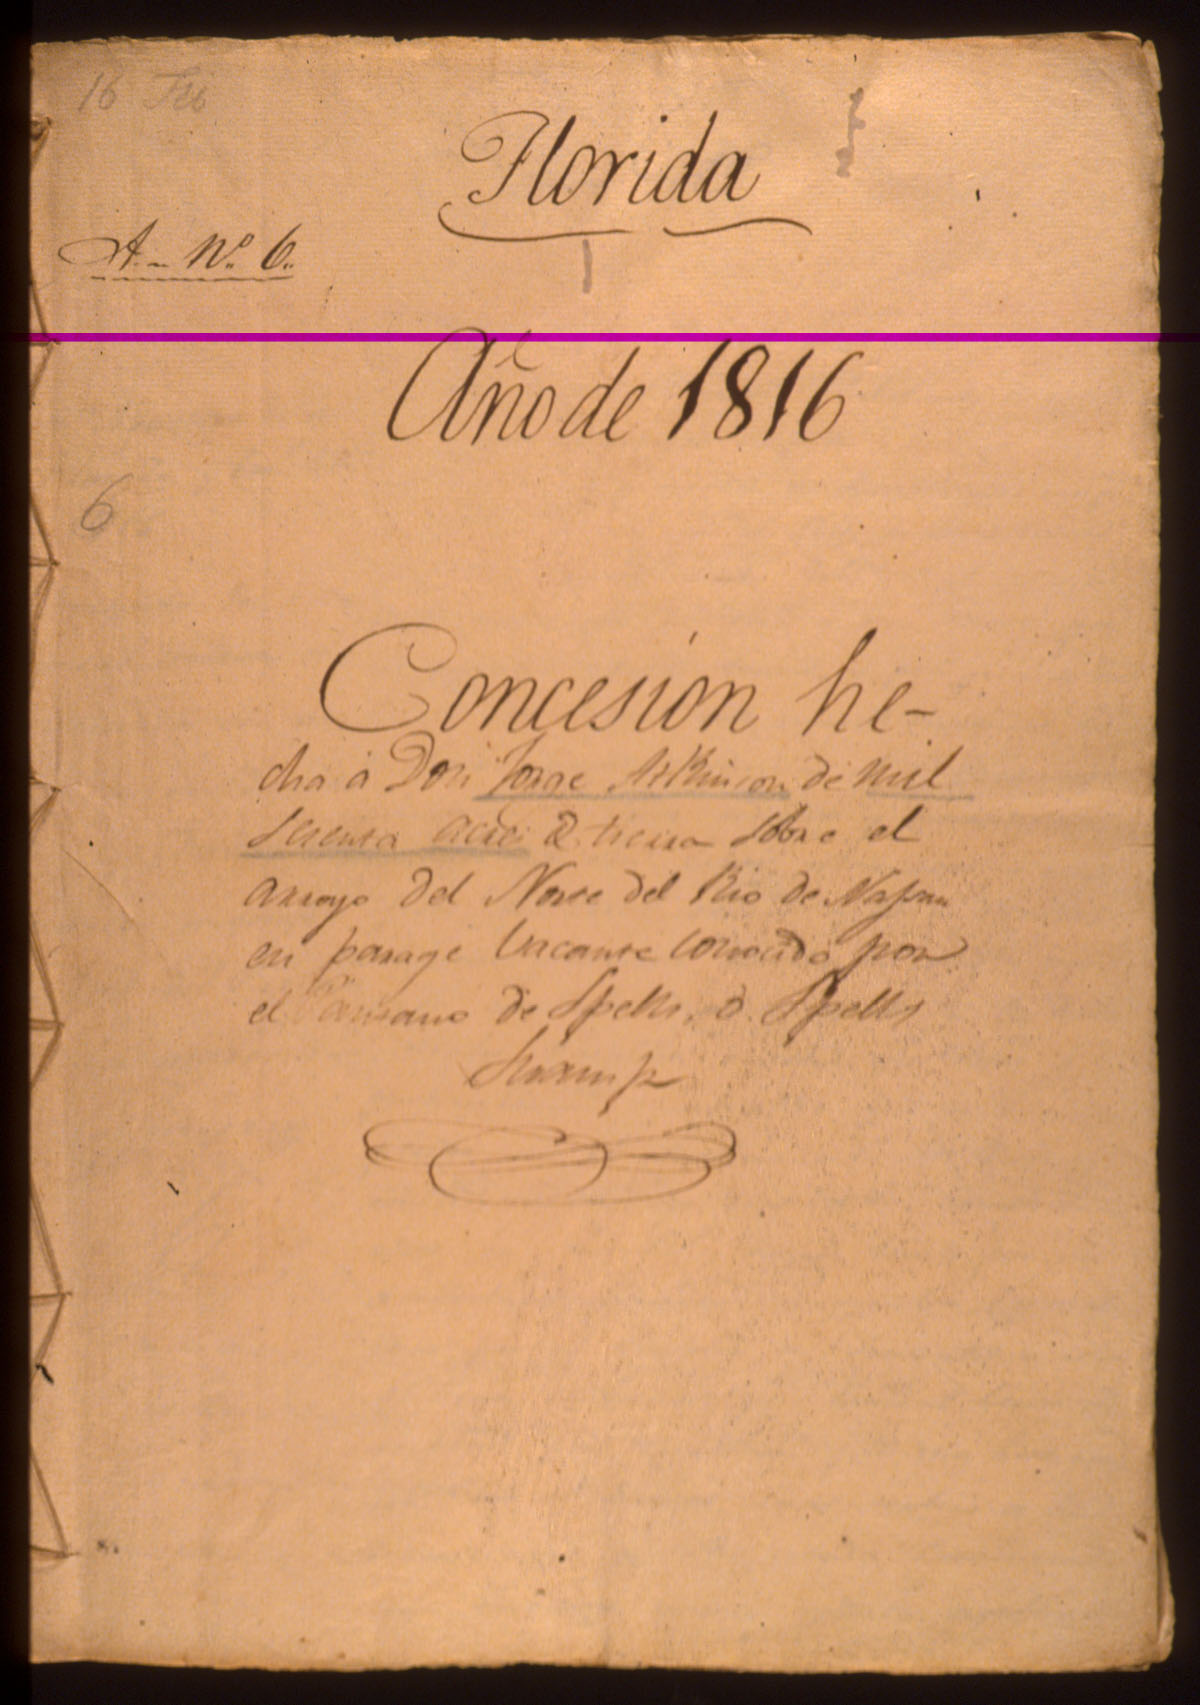 16 Feb
Florida
A. Nº 6.
Año de 1816
6
Concesion he-
cha á Don Jorge Atkinson de mil
sesenta acres de tierra sobre el
arroyo del Norte del Rio de Nassau
en parage vacante conocido por
el Pantano de Spells, ó Spells
Swamp